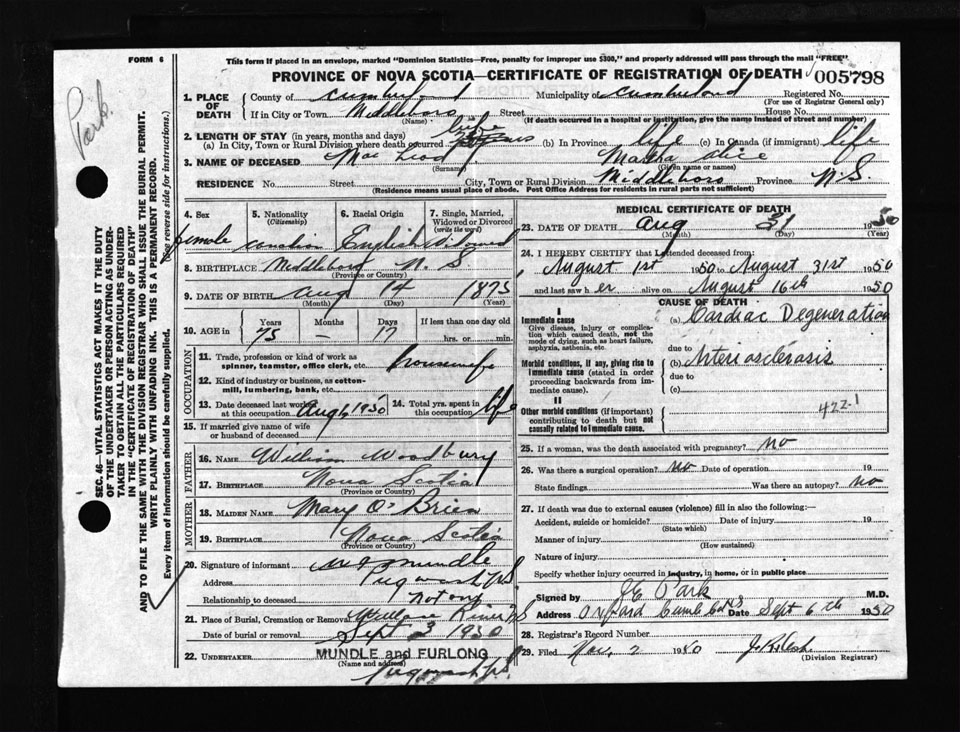 FORM 6
This form if placed in an envelope, marked "Dominion Statistics—Free, penalty for improper use $300," and properly addressed will pass through the mail "FREE"
PROVINCE OF NOVA SCOTIA—CERTIFICATE OF REGISTRATION OF DEATH
005798
Park
SEC. 46—VITAL STATISTICS ACT MAKES IT THE DUTY
OF THE UNDERTAKER OR PERSON ACTING AS UNDER-
TAKER TO OBTAIN ALL THE PARTICULARS REQUIRED
IN THE "CERTIFICATE OF REGISTRATION OF DEATH"
AND TO FILE THE SAME WITH THE DIVISION REGISTRAR WHO SHALL ISSUE THE BURIAL PERMIT.
WRITE PLAINLY WITH UNFADING INK. THIS IS A PERMANENT RECORD.
Every item of information should be carefully supplied. (See reverse side for instructions.)
1. PLACE OF DEATH County of Cumberland Municipality of Cumberland Registered No.
(For use of Registrar General only)
If in City or Town Middleboro Street House No.
(Name) (If death occurred in a hospital or institution, give the name instead of street and number)
2. LENGTH OF STAY (in years, months and days)
(a) In City, Town or Rural Division where death occurred life (b) In Province life (c) In Canada (if immigrant) life
3. NAME OF DECEASED Mac Leod Martha Alice
(Surname) (Given name or names)
RESIDENCE No. Street City, Town or Rural Division Middleboro Province N.S.
(Residence means usual place of abode. Post Office Address for residents in rural parts not sufficient)
4. Sex
female
5. Nationality (Citizenship)
6. Racial Origin
English
7. Single, Married, Widowed or Divorced (write the word)
Widowed
8. BIRTHPLACE Middleboro N. S
(Province or Country)
9. DATE OF BIRTH Aug 14 1875
(Month) (Day) (Year)
10. AGE in Years Months Days If less than one day
75 — 17 hrs. or min.
OCCUPATION
11. Trade, profession or kind of work as spinner, teamster, office clerk, etc. housewife
12. Kind of industry or business, as cotton-mill, lumbering, bank, etc.
13. Date deceased last worked at this occupation Aug, 1950 14. Total yrs. spent in this occupation life
15. If married give name of wife or husband of deceased
FATHER
16. NAME William Woodbury
17. BIRTHPLACE Nova Scotia
(Province or Country)
MOTHER
18. MAIDEN NAME Mary O'Brien
19. BIRTHPLACE Nova Scotia
(Province or Country)
20. Signature of informant Mundle
Address Pugwash N.S.
Relationship to deceased not any
21. Place of Burial, Cremation or Removal River N S
Date of burial or removal Sept 3 1950
22. UNDERTAKER MUNDLE and FURLONG
(Name and address)
Pugwash N.S.
MEDICAL CERTIFICATE OF DEATH
23. DATE OF DEATH Aug 31 1950
(Month) (Day) (Year)
24. I HEREBY CERTIFY that I attended deceased from:
August 1st 1950 to August 31st 1950
and last saw her alive on August 16th 1950
CAUSE OF DEATH
I
Immediate cause (a) Cardiac Degeneration
Give disease, injury or complication which caused death, not the mode of dying, such as heart failure, asphyxia, asthenia, etc.
due to
Morbid conditions, if any, giving rise to immediate cause (stated in order proceeding backwards from immediate cause).
(b) Arteriosclerosis
due to
(c)
II
Other morbid conditions (if important) contributing to death but not causally related to immediate cause.
422-1
25. If a woman, was the death associated with pregnancy? no
26. Was there a surgical operation? no Date of operation 19
State findings Was there an autopsy? no
27. If death was due to external causes (violence) fill in also the following:—
Accident, suicide or homicide? Date of injury 19
(State which)
Manner of injury
(How sustained)
Nature of injury
Specify whether injury occurred in industry, in home, or in public place
Signed by J E Park M.D.
Address Oxford Cumb Co NS Date Sept 6th 1950
28. Registrar's Record Number
29. Filed Nov. 2 1950
(Division Registrar)